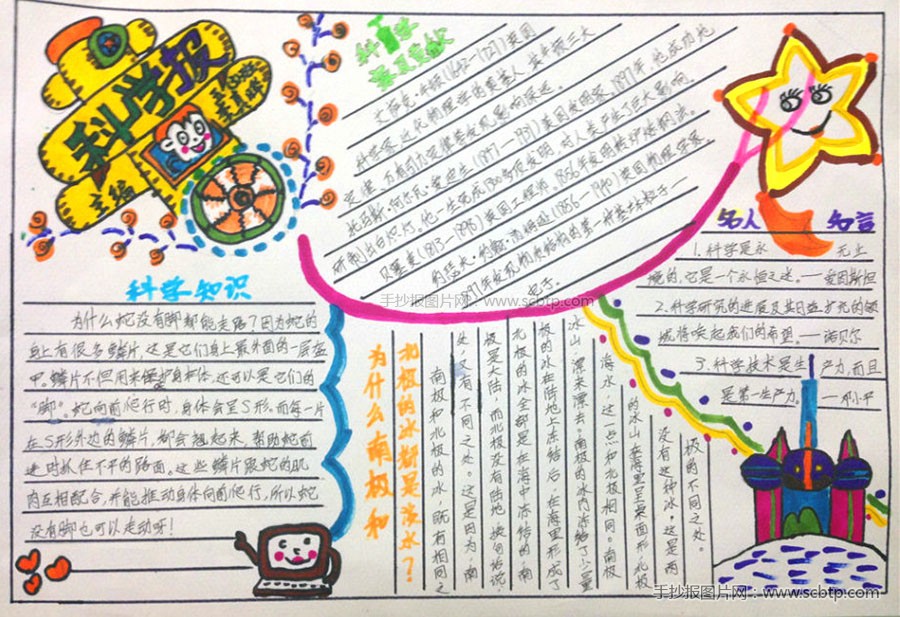 科学报
主编
科学
贡献
艾萨克·牛顿(1642—1727)英国
科学家,近代物理学的奠基人,其牛顿三大
定律、万有引力定律等发现影响深远。
托玛斯·阿尔瓦·爱迪生(1847—1931)美国发明家,1897年,他成功地
研制出白炽灯,他一生完成1300多项发明,对人类产生了巨大影响。
贝塞麦(1813—1898)英国工程师。1856年发明转炉炼钢法。
约瑟夫·约翰·汤姆逊(1856—1940)英国物理学家。
1897年发现物质结构的第一种基本粒子—
电子。
名人
知言
1.科学是永 无止
境的,它是一个永恒之迷。—爱因斯坦
2.科学研究的进展及其日益扩充的领
域将唤起我们的希望。—诺贝尔
3.科学技术是生产力,而且
是第一生产力。—邓小平
科学知识
为什么蛇没有脚都能走路?因为蛇的
身上有很多鳞片,这是它们身上最外面的一层盔
甲。鳞片不但用来保护身体,还可以是它们的
“脚”。蛇向前爬行时,身体会呈S形。而每一片
在S形外边的鳞片,都会翘起来,帮助蛇前
进时抓住不平的路面。这些鳞片跟蛇的肌
肉互相配合,并能推动身体向前爬行,所以蛇
没有脚也可以走动呀!
为什么南极和
北极的冰都是淡水?
南极和北极的冰,既有相同之
处,又有不同之处。这是因为,南
极是大陆,而北极没有陆地,换句话说,
北极的冰全部是在海中冻结的,南
极的冰在陆地上冻结后,在海里形成了
冰山,漂来漂去。南极的冰内冻结了少量
海水,这一点和北极相同。南极
的冰山,在海里呈桌面形,北极
没有这种冰,这是两
极的不同之处。
手抄报图片网:www.scbtp.com
手抄报图片网:www.scbtp.com